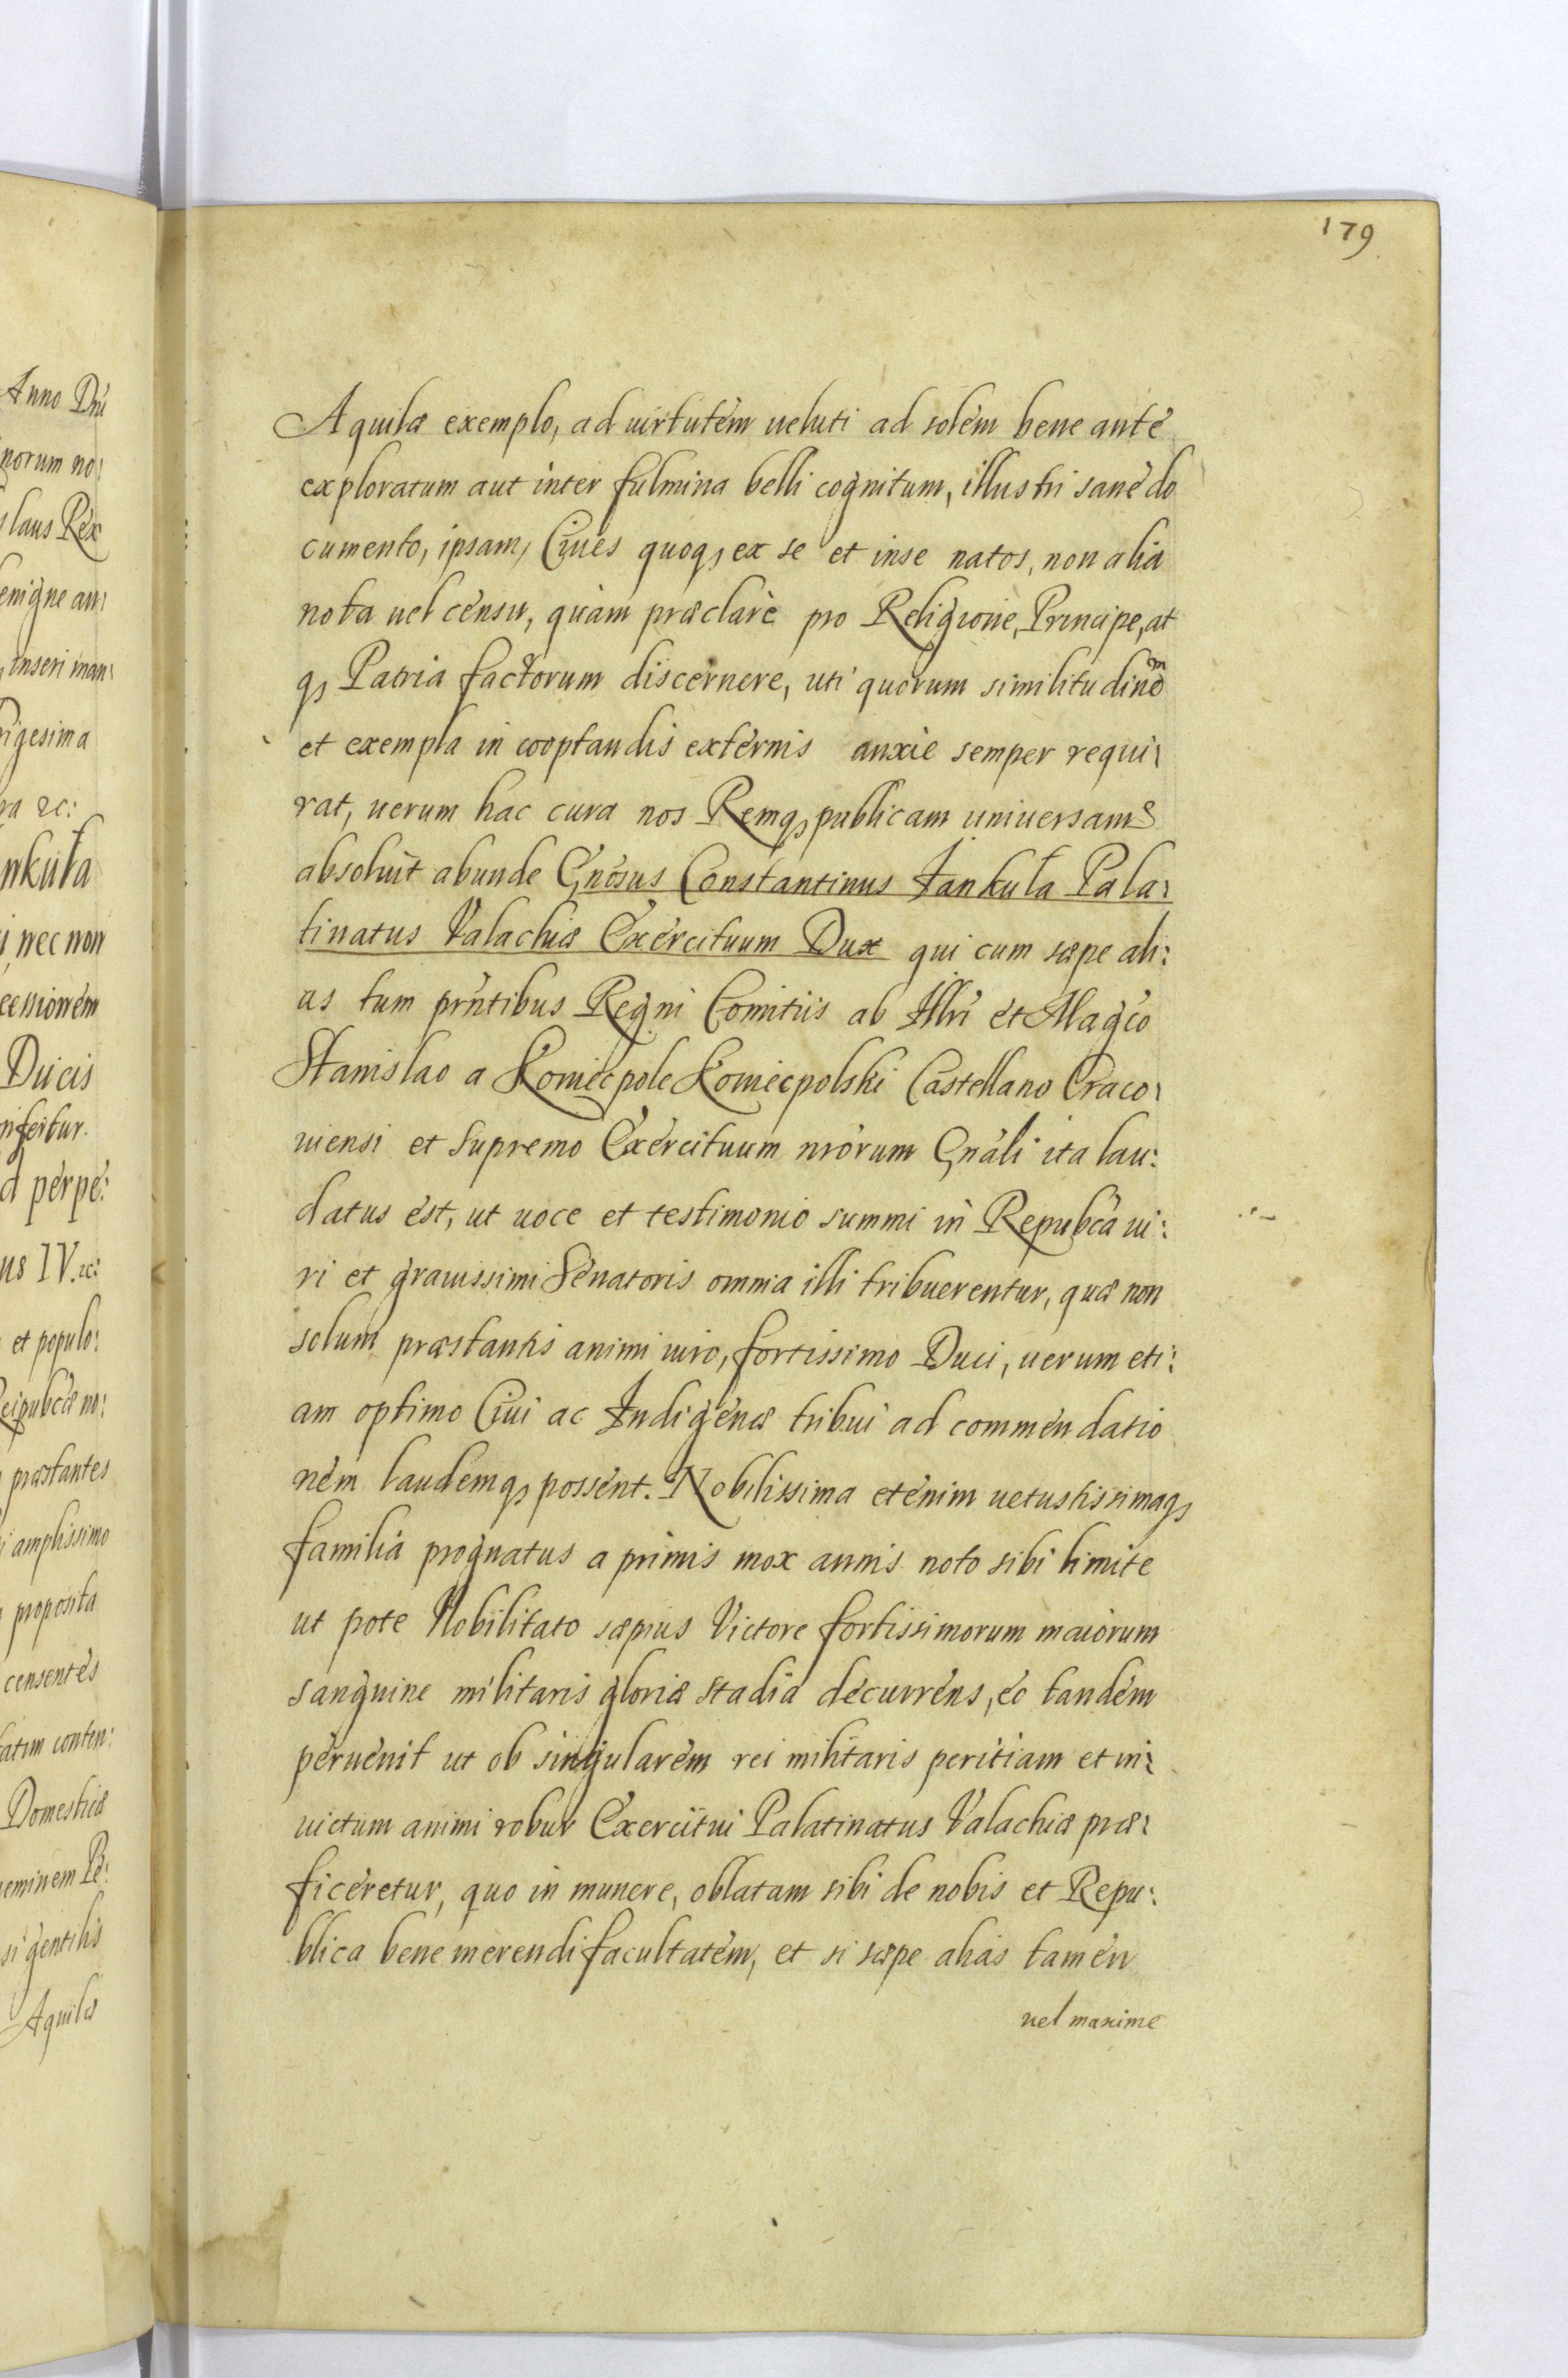 179
Anno Dni
norum no:
slaus Rex
enigne an:
inseri man:
rigesima
nkuła
nec non
cessionem
Ducis
d perpe:
us IV. &c:
et populo:
Reipubcæ no:
præstantes
amplissimo
proposita
censentes
atim conten:
Domesticæ
neminem Pe:
si gentilis
Aquilæ
Aquilæ exemplo, ad uirtutem ueluti ad solem bene ante
exploratum aut inter fulmina belli cognitum, illustri sanè do
cumento, ipsam, Ciues quoq, ex se et inse natos, non alia
nota uel censu, quàm præclarè pro Religione, Principe, at
q, Patria factorum discernere, uti quorum similitudinem
et exempla in cooptandis externis anxie semper requi:
rat, uerum hac cura nos Remq, publicam uniuersam
absoluit abunde Gnosus Constantinus Jankuła Pala:
tinatus Valachiæ Exercituum Dux qui cum sæpe ali:
as tum prntibus Regni Comitiis ab Illri et Magco
Stanislao a Koniecpole Koniecpolski Castellano Craco:
uiensi et Supremo Exercituum nrorum Gnali ita lau:
datus est, ut uoce et testimonio summi in Repubca ui:
ri et grauissimi Senatoris omnia illi tribuerentur, quæ non
solum præstantis animi uiro, fortissimo Duci, uerum eti:
am optimo Ciui ac Indigenæ tribui ad commendatio
nem laudemq, possent. Nobilissima etenim uetustissimaq,
familia prognatus a primis mox annis noto sibi limite
ut pote Nobilitato sæpius Victore fortissimorum maiorum
sanguine militaris gloriæ stadia decurrens, eo tandem
peruenit ut ob singularem rei militaris peritiam et in:
uictum animi robur Exercitui Palatinatus Valachiæ præ:
ficeretur, quo in munere, oblatam sibi de nobis et Repu:
blica bene merendi facultatem, et si sæpe alias tamen
uel maxime